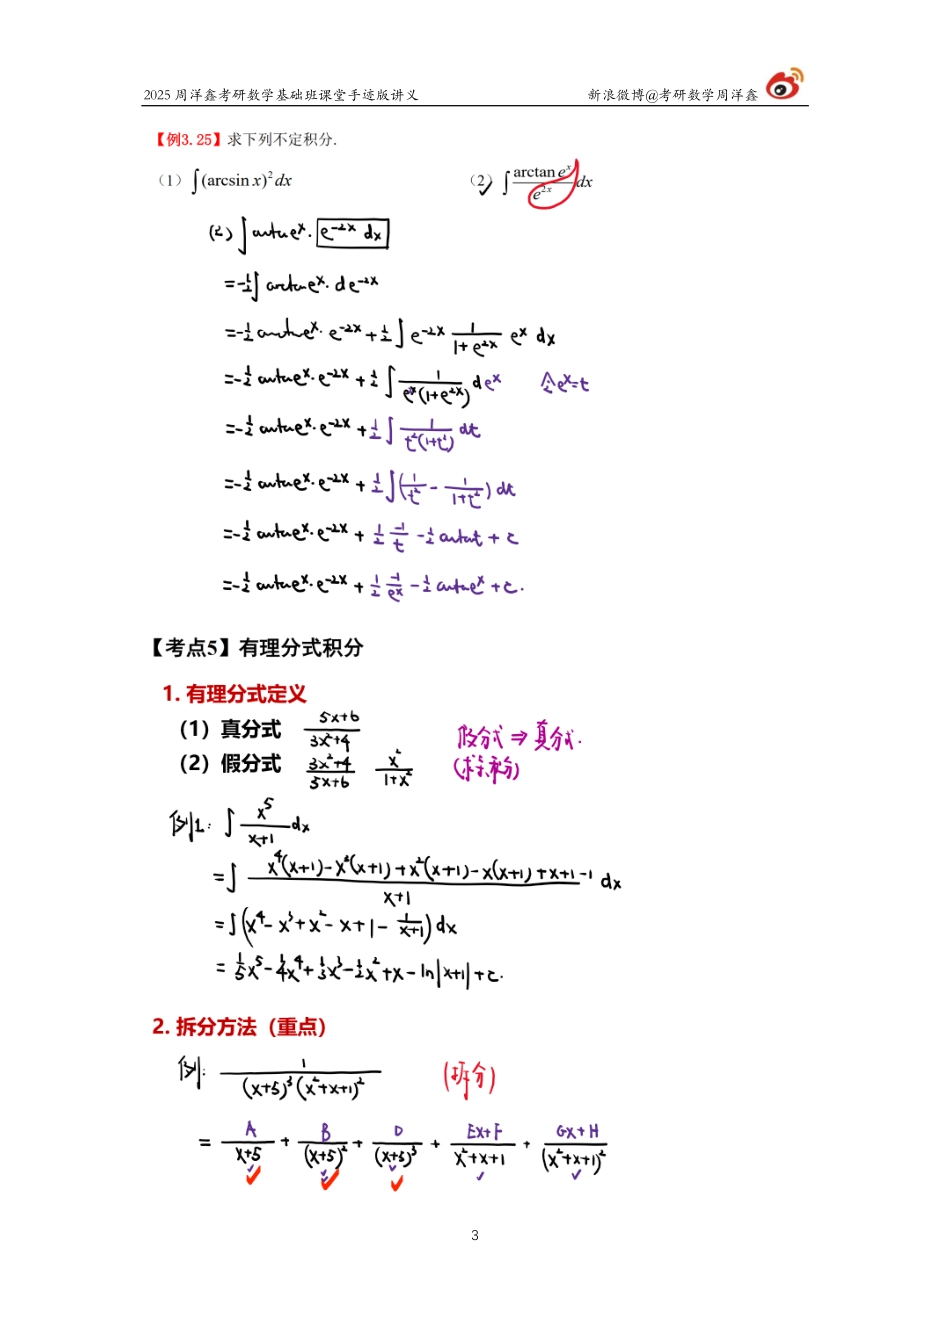 2025 周洋鑫考研数学基础班课堂手迹版讲义 新浪微博@考研数学周洋鑫
【例3.25】求下列不定积分.
（1）∫(arcsin x)²dx （2）∫ arctan eˣ / e²ˣ dx
(2) ∫arctan eˣ · e⁻²ˣ dx
=-½∫arctan eˣ · de⁻²ˣ
=-½ arctan eˣ · e⁻²ˣ + ½∫e⁻²ˣ 1/(1+e²ˣ) eˣ dx
=-½ arctan eˣ · e⁻²ˣ + ½∫ 1/(e²ˣ(1+e²ˣ)) deˣ 令eˣ=t
=-½ arctan eˣ · e⁻²ˣ + ½∫ 1/(t²(1+t²)) dt
=-½ arctan eˣ · e⁻²ˣ + ½∫(1/t² - 1/(1+t²)) dt
=-½ arctan eˣ · e⁻²ˣ + ½ -1/t -½ arctan t + c
=-½ arctan eˣ · e⁻²ˣ + ½ -1/eˣ -½ arctan eˣ + c.
【考点5】有理分式积分
1. 有理分式定义
（1）真分式 (5x+6)/(3x²+4)
（2）假分式 (3x²+4)/(5x+6) x²/(1+x²)
假分式 ⇒ 真分式.
(求积分)
例1: ∫ x⁵/(x+1) dx
=∫ (x⁴(x+1)-x³(x+1)+x²(x+1)-x(x+1)+x+1-1)/(x+1) dx
=∫(x⁴-x³+x²-x+1- 1/(x+1))dx
= 1/5x⁵-1/4x⁴+1/3x³-1/2x²+x-ln|x+1|+c.
2. 拆分方法（重点）
例: 1/((x+5)³(x²+x+1)²) (拆分)
= A/(x+5) + B/(x+5)² + D/(x+5)³ + (Ex+F)/(x²+x+1) + (Gx+H)/(x²+x+1)²
3